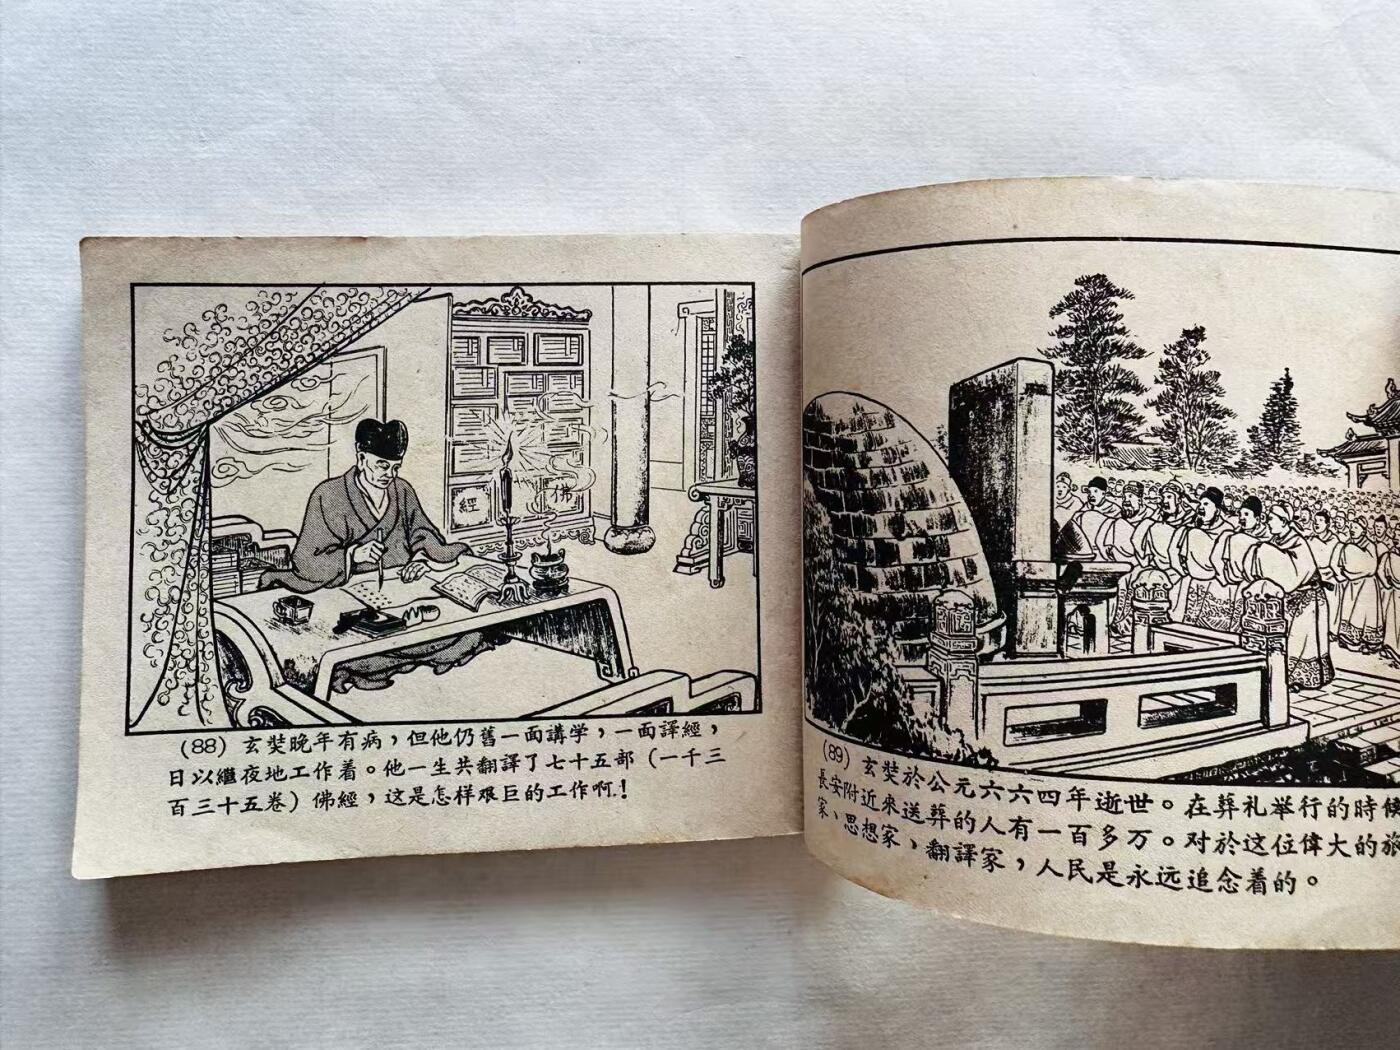 經
佛
(88) 玄奘晚年有病，但他仍舊一面講学，一面譯經，
日以繼夜地工作着。他一生共翻譯了七十五部（一千三
百三十五卷）佛經，这是怎样艰巨的工作啊！
(89) 玄奘於公元六六四年逝世。在葬礼举行的時候
長安附近來送葬的人有一百多万。对於这位偉大的旅
家、思想家、翻譯家，人民是永远追念着的。